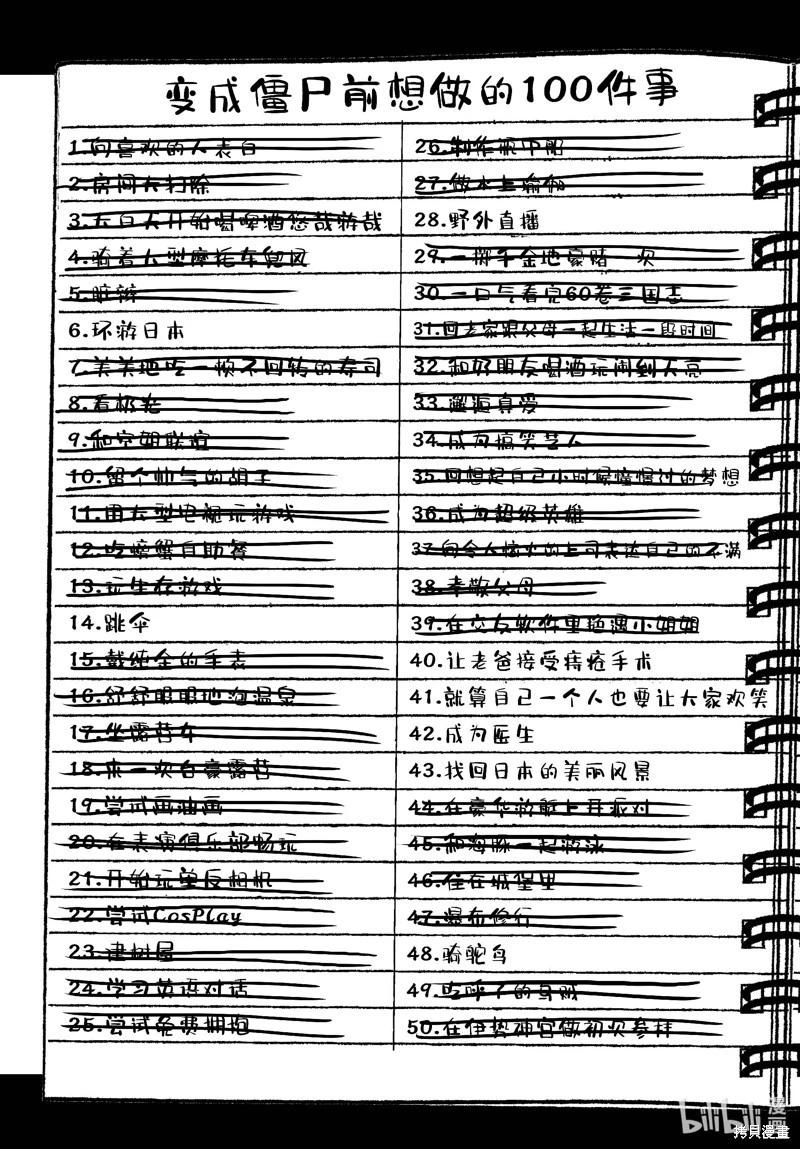 变成僵尸前想做的100件事
1.向喜欢的人表白
2.房间大扫除
3.大白天开始喝啤酒悠哉游哉
4.骑着大型摩托车兜风
5.脏辫
6.环游日本
7.美美地吃一顿不回转的寿司
8.看极光
9.和空姐联谊
10.留个帅气的胡子
11.用大型电视玩游戏
12.吃螃蟹自助餐
13.玩生存游戏
14.跳伞
15.戴纯金的手表
16.舒舒服服地泡温泉
17.坐露营车
18.来一次自豪露营
19.尝试画油画
20.在表演俱乐部畅玩
21.开始玩单反相机
22.尝试CosPlay
23.建树屋
24.学习英语对话
25.尝试免费拥抱
26.制作瓶中船
27.做水上瑜伽
28.野外直播
29.一掷千金地豪赌一次
30.一口气看完60卷三国志
31.回老家跟父母一起生活一段时间
32.和好朋友喝酒玩闹到天亮
33.邂逅真爱
34.成为搞笑艺人
35.回想起自己小时候憧憬过的梦想
36.成为超级英雄
37.向令人恼火的上司表达自己的不满
38.孝敬父母
39.在交友软件里艳遇小姐姐
40.让老爸接受痔疮手术
41.就算自己一个人也要让大家欢笑
42.成为医生
43.找回日本的美丽风景
44.在豪华游艇上开派对
45.和海豚一起游泳
46.住在城堡里
47.瀑布修行
48.骑鸵鸟
49.吃呼子的乌贼
50.在伊势神宫做初次参拜
bilibili漫画
拷贝漫畫